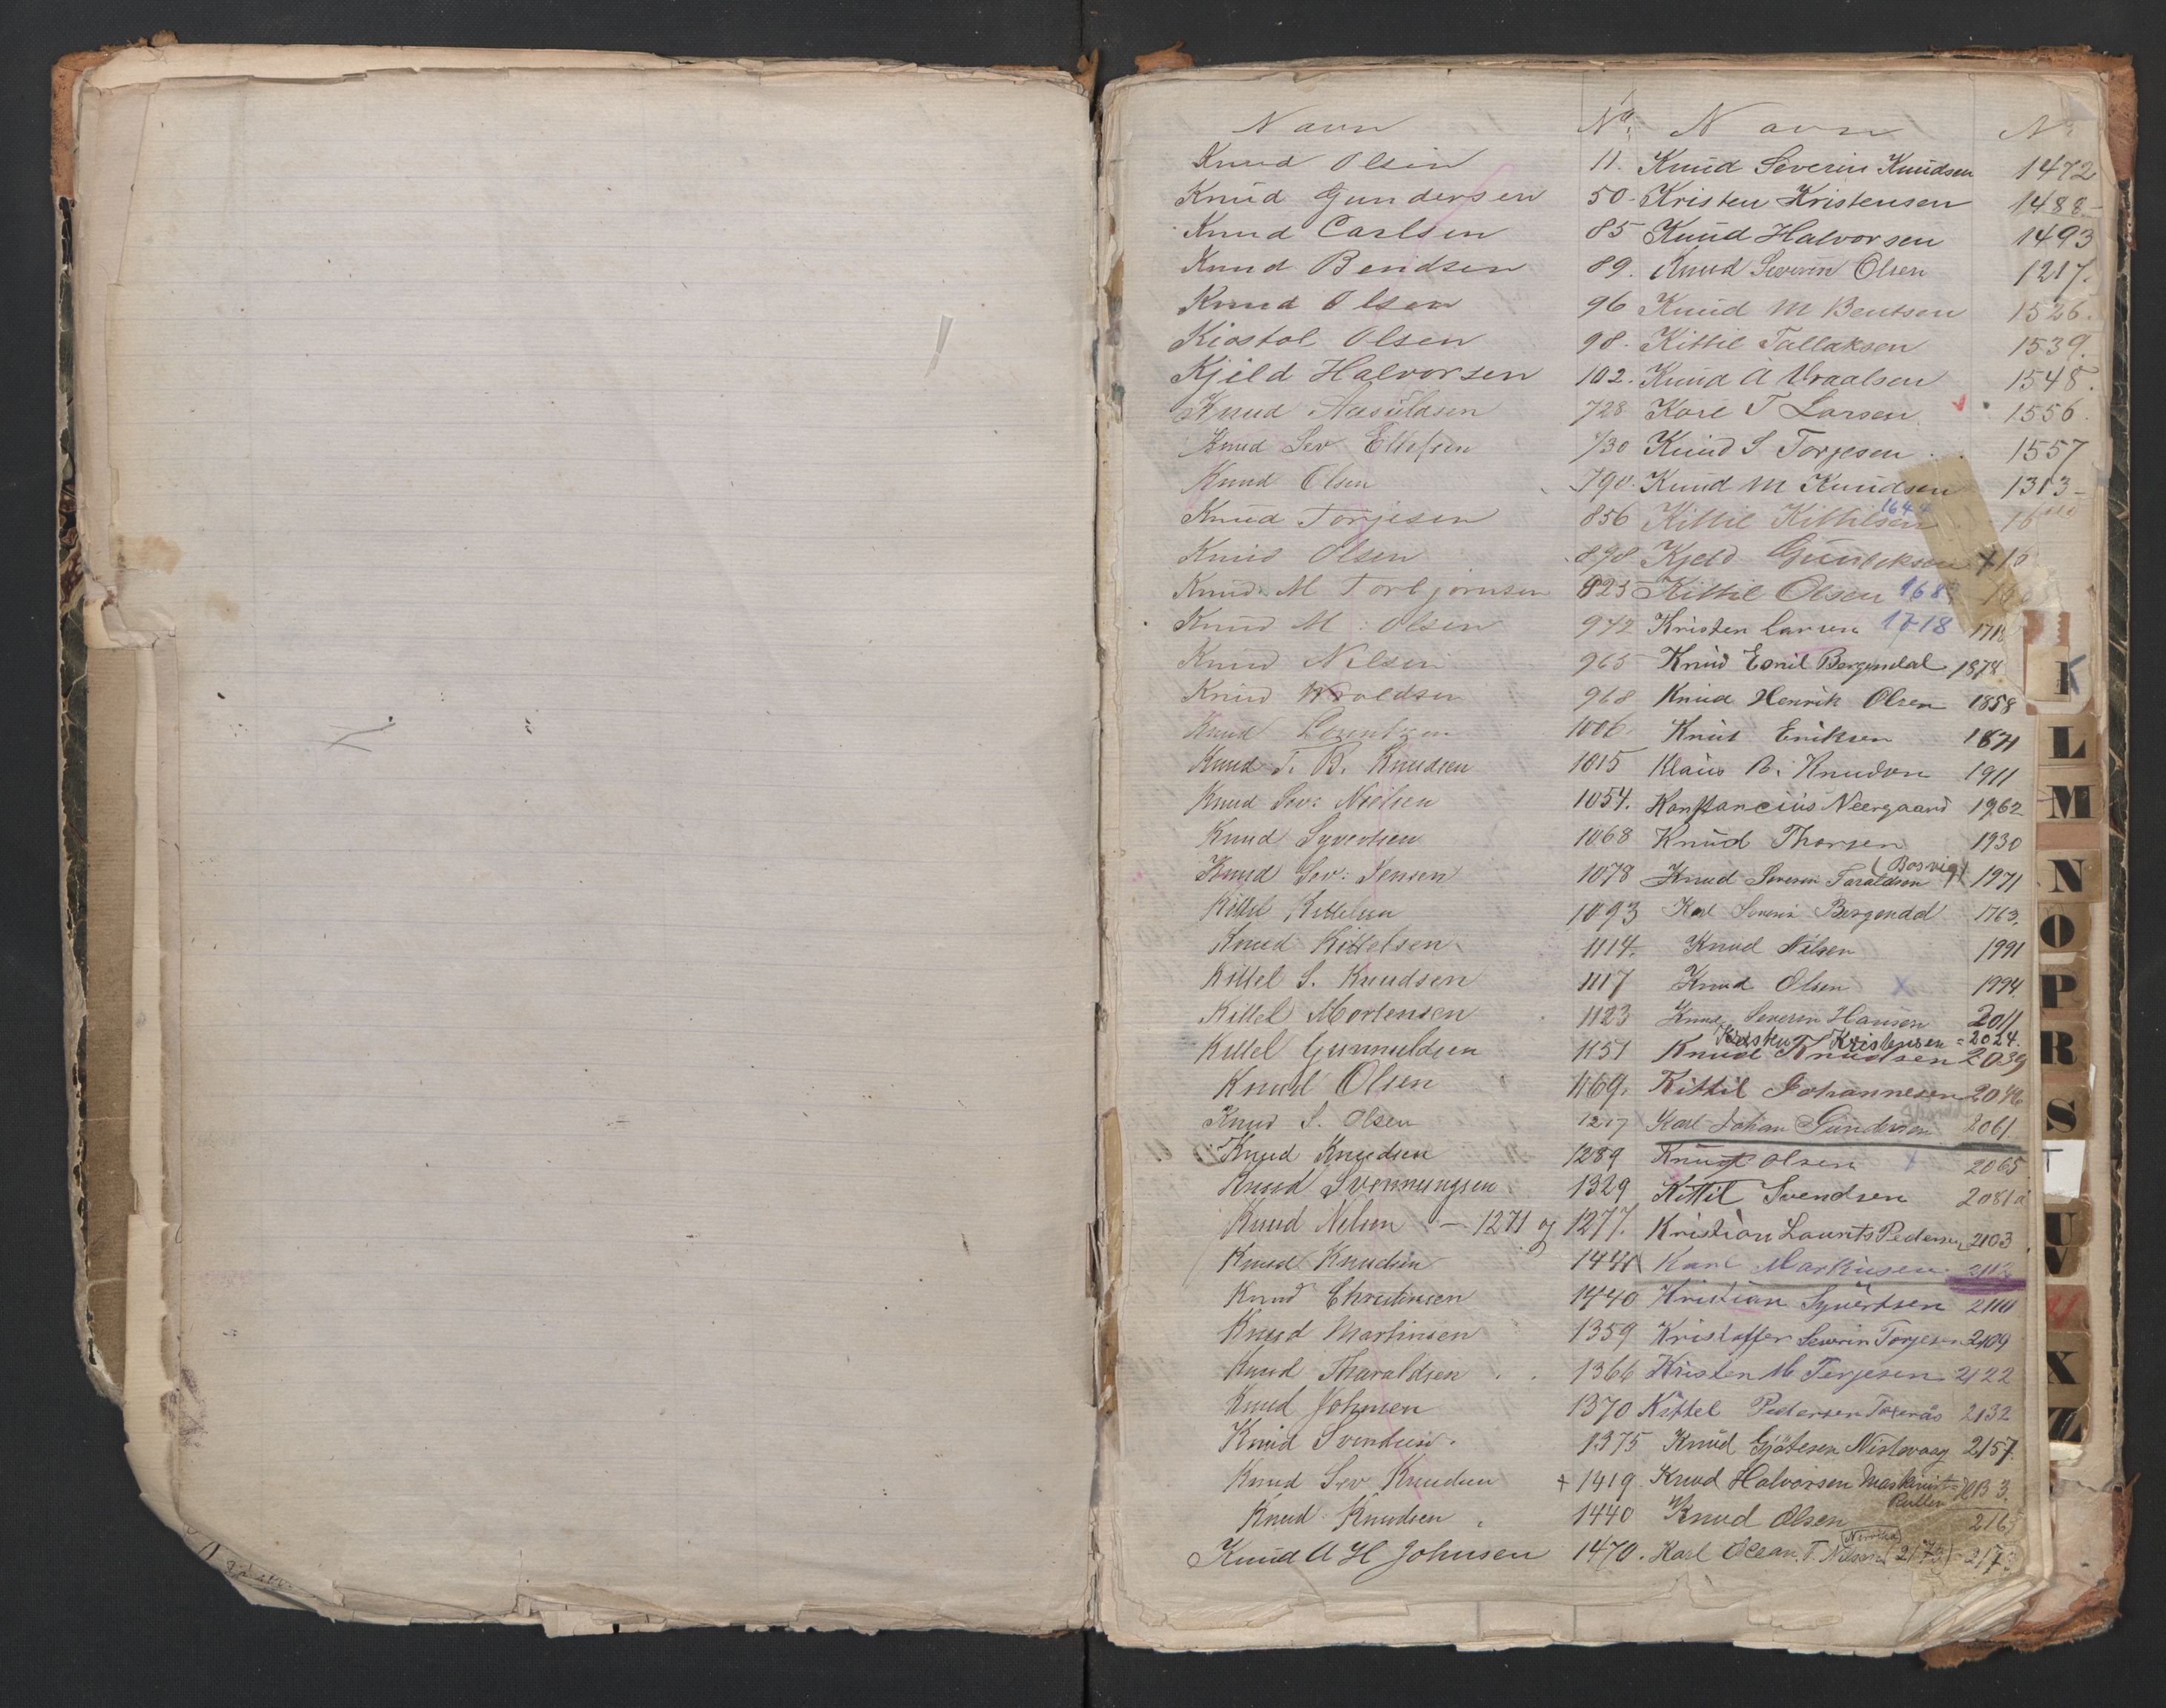 Navn No. Navn No
Knud Olsen 11. Knud Severin Knudsen 1472
Knud Gundersen 50- Kristen Kristensen 1488-
Knud Carlsen 85 Knud Halvorsen 1493
Knud Bendsen 89. Knud Severin Olsen 1217.
Knud Olsen 96 Knud M Bentsen 1526.
Kiostol Olsen 98. Kittil Tallaksen 1539.
Kjeld Halvorsen 102. Knud A Vraalsen 1548.
Knud Aasuldsen 728 Karl T Larsen 1556.
Knud Sev Ellefsen 730 Knud S Torjesen 1557
Knud Olsen 790. Knud M Knudsen 1313-
Knud Torjesen 856 Kittil Kittilsen 1644 16
Knud Olsen 898 Kjeld Gunleksen
Knud M Torbjørnsen 923 Kittil Olsen 168
Knud M: Olsen 942 Kristen Larsen 1718 1718
Knud Nilsen 965 Knud Emil Bergendal 1878
Knud Wroldsen 968 Knud Henrik Olsen 1858
Knud Lorentzen 1006. Knut Eriksen 1871
Knud T. B. Knudsen 1015 Klaus B. Knudsen 1911
Knud Sev: Nielsen 1054. Konstancius Neergaard 1962
Knud Syvertsen 1068 Knud Thorsen 1930
Knud Sev: Jensen 1078 Knud Severin Taraldsen (Bosvig) 1971
Kittel Kittelsen 1093 Karl Severin Bergendal 1763.
Knud Kittelsen 1114. Knud Nilsen 1991
Kittel S. Knudsen 1117 Knud Olsen x 1994
Kittel Mortensen 1123 Knud Severin Hansen 2011
Kristen Kristensen = 2024.
Kittel Gunnuldsen 1151 Knud Knudsen 2039
Knud Olsen 1169. Kittil Johannesen 2046
Knud S. Olsen 1217 Karl Johan Gundersen 2061.
Knud Knudsen 1289 Knud Olsen x 2065
Knud Svennungsen 1329 Kittil Svendsen 2081a
Knud Nelsen - 1271 og 1277. Kristian Launts Pedersen 2103
Knud Knudsen 1441 Karl Markusen 211
Knud Christensen 1440 Kristian Syvertsen 2110
Knud Martinsen 1359 Kristoffer Severin Torjesen 2109
Knud Tharaldsen 1366 Kristen M Terjesen 2122
Knud Johnsen 1370 Kittel Pedersen 2132
Knud Svendsen. 1375 Knud Gjøtesen Nistevaag 2157
Knud Sev Knudsen + 1419. Knud Halvorsen Maskinist Rullen
Knud Knudsen 1440 Knud Olsen 216
Knud A H Johnsen 1470. Karl Ocean T. Nilsen 217
K
L
M
N
O
P
R
S
T
U
V
X
Z